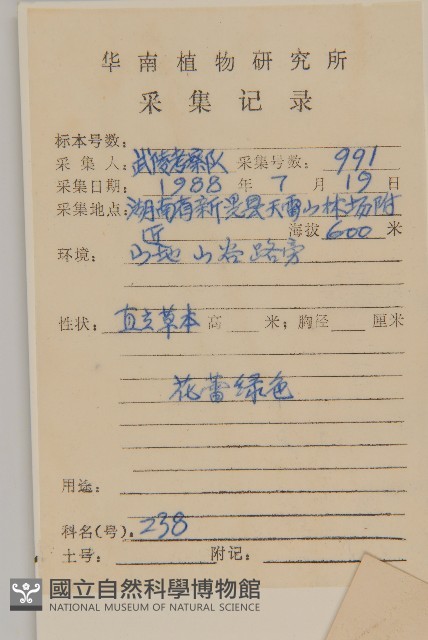 华南植物研究所
采集记录
标本号数：
采集人：武陵考察队 采集号数：991
采集日期：1988年7月19日
采集地点：湖南省新晃县天雷山林场附
近 海拔600米
环境：山地 山谷路旁
性状：直立草本 高 米；胸径 厘米
花蕾绿色
用途：
科名(号)：238
土号： 附记：
國立自然科學博物館
NATIONAL MUSEUM OF NATURAL SCIENCE